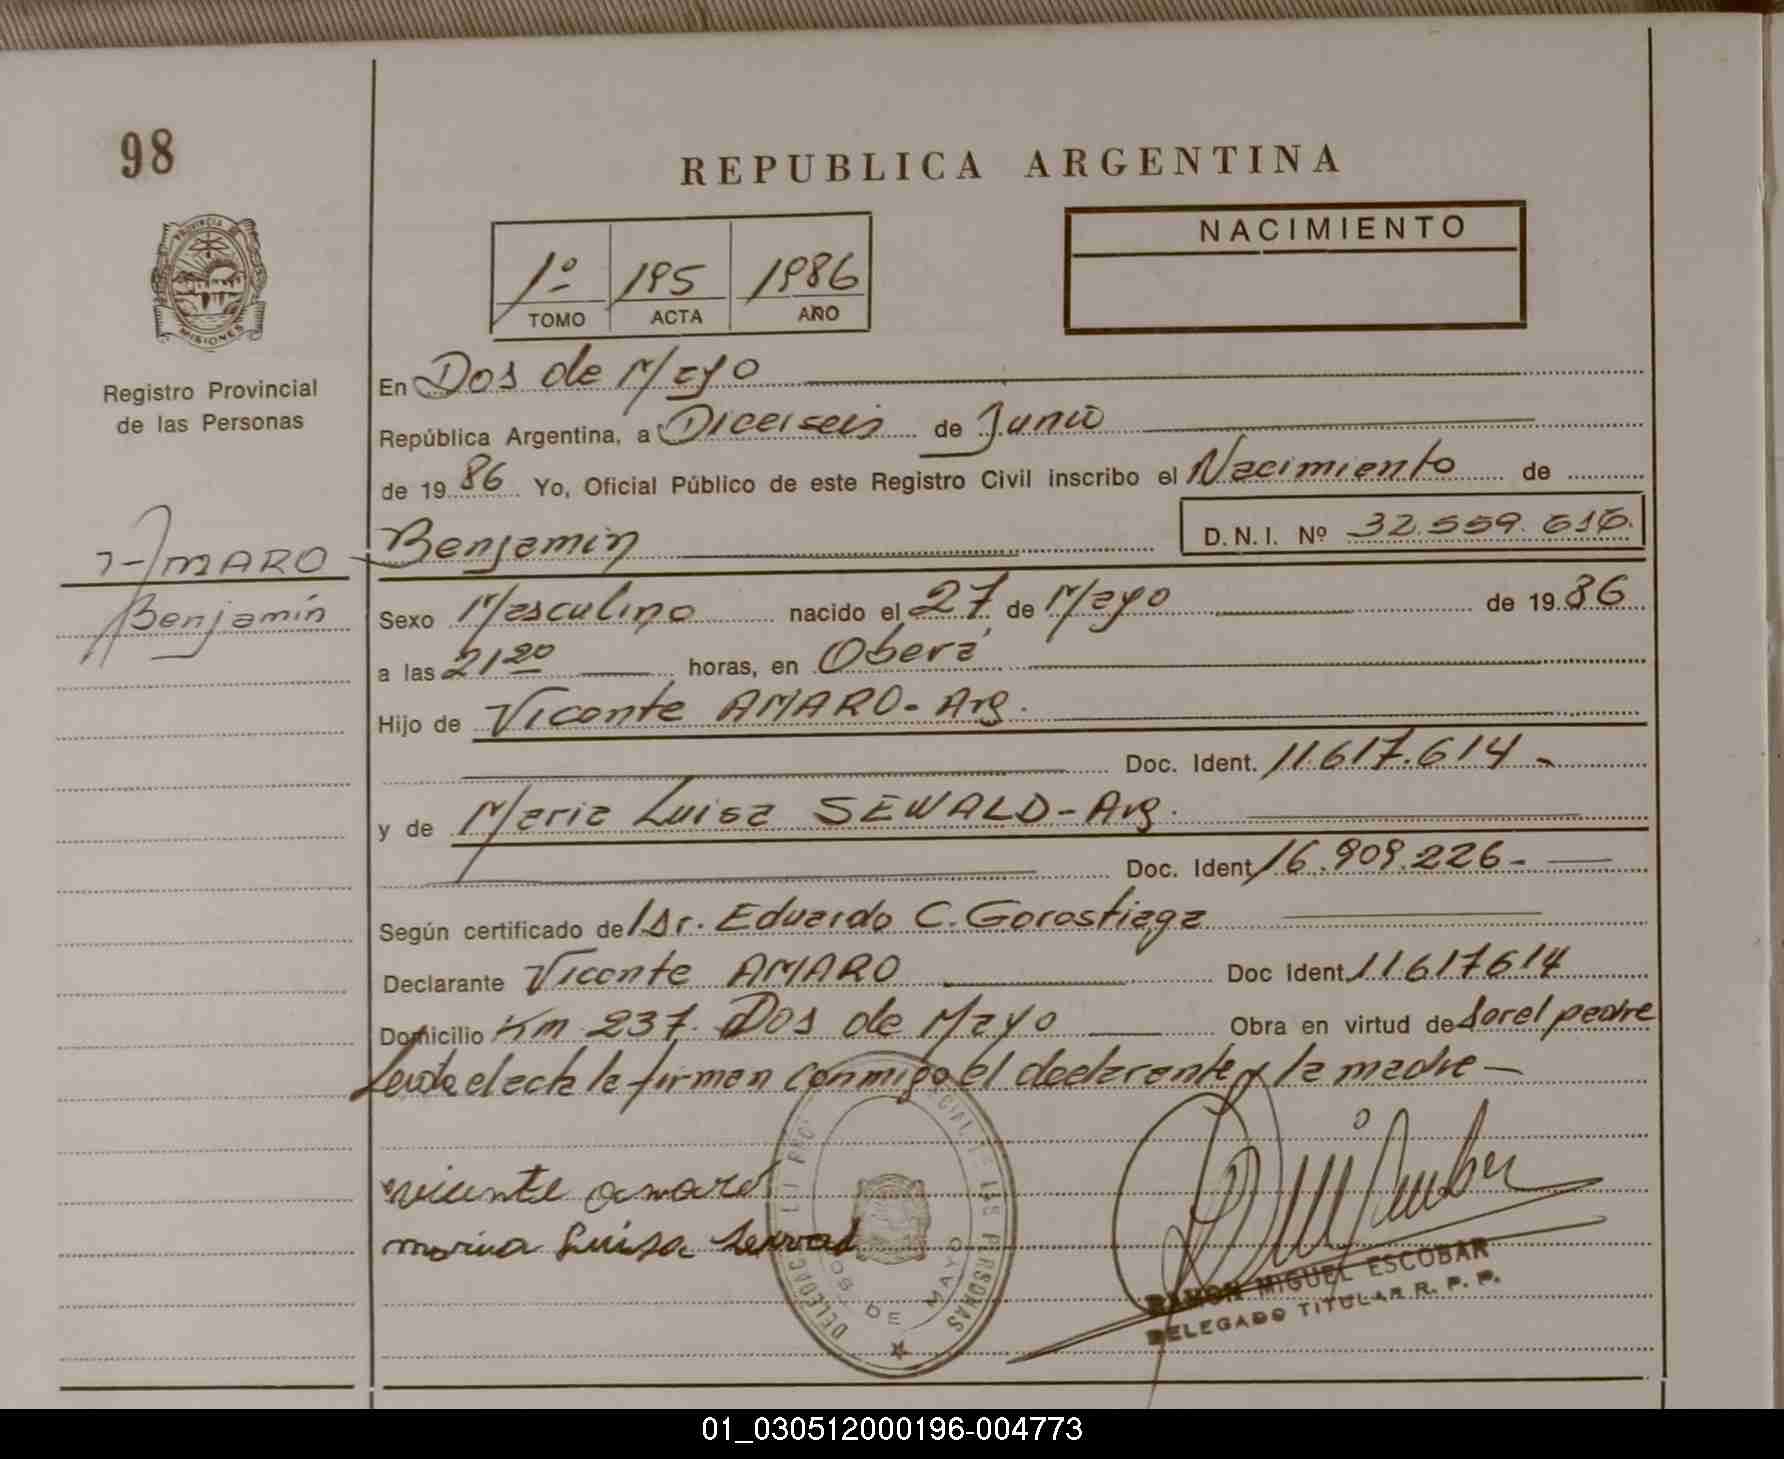 98
REPUBLICA ARGENTINA
PROVINCIA DE
MISIONES
Registro Provincial
de las Personas
1º 195 1986
TOMO ACTA AÑO
NACIMIENTO
En Dos de Mayo
República Argentina, a Dieciseis de Junio
de 19 86 Yo, Oficial Público de este Registro Civil inscribo el Nacimiento de
AMARO
Benjamín
Benjamin D.N.I. Nº 32.559.616.
Sexo Masculino nacido el 27 de Mayo de 19 86
a las 21 20 horas, en Oberá
Hijo de Vicente AMARO - Arg.
Doc. Ident. 11.617.614 -
y de Maria Luisa SEWALD - Arg.
Doc. Ident 16.909.226 -
Según certificado de Dr. Eduardo C. Gorostiaga
Declarante Vicente AMARO Doc Ident. 11617614
Domicilio Km 237. Dos de Mayo Obra en virtud de ser el padre
Leída el acta la firman conmigo el declarante y la madre -
vicente amaro
maria Luisa
DOS DE MAYO
RAMON MIGUEL ESCOBAR
DELEGADO TITULAR R. P. P.
01_030512000196-004773